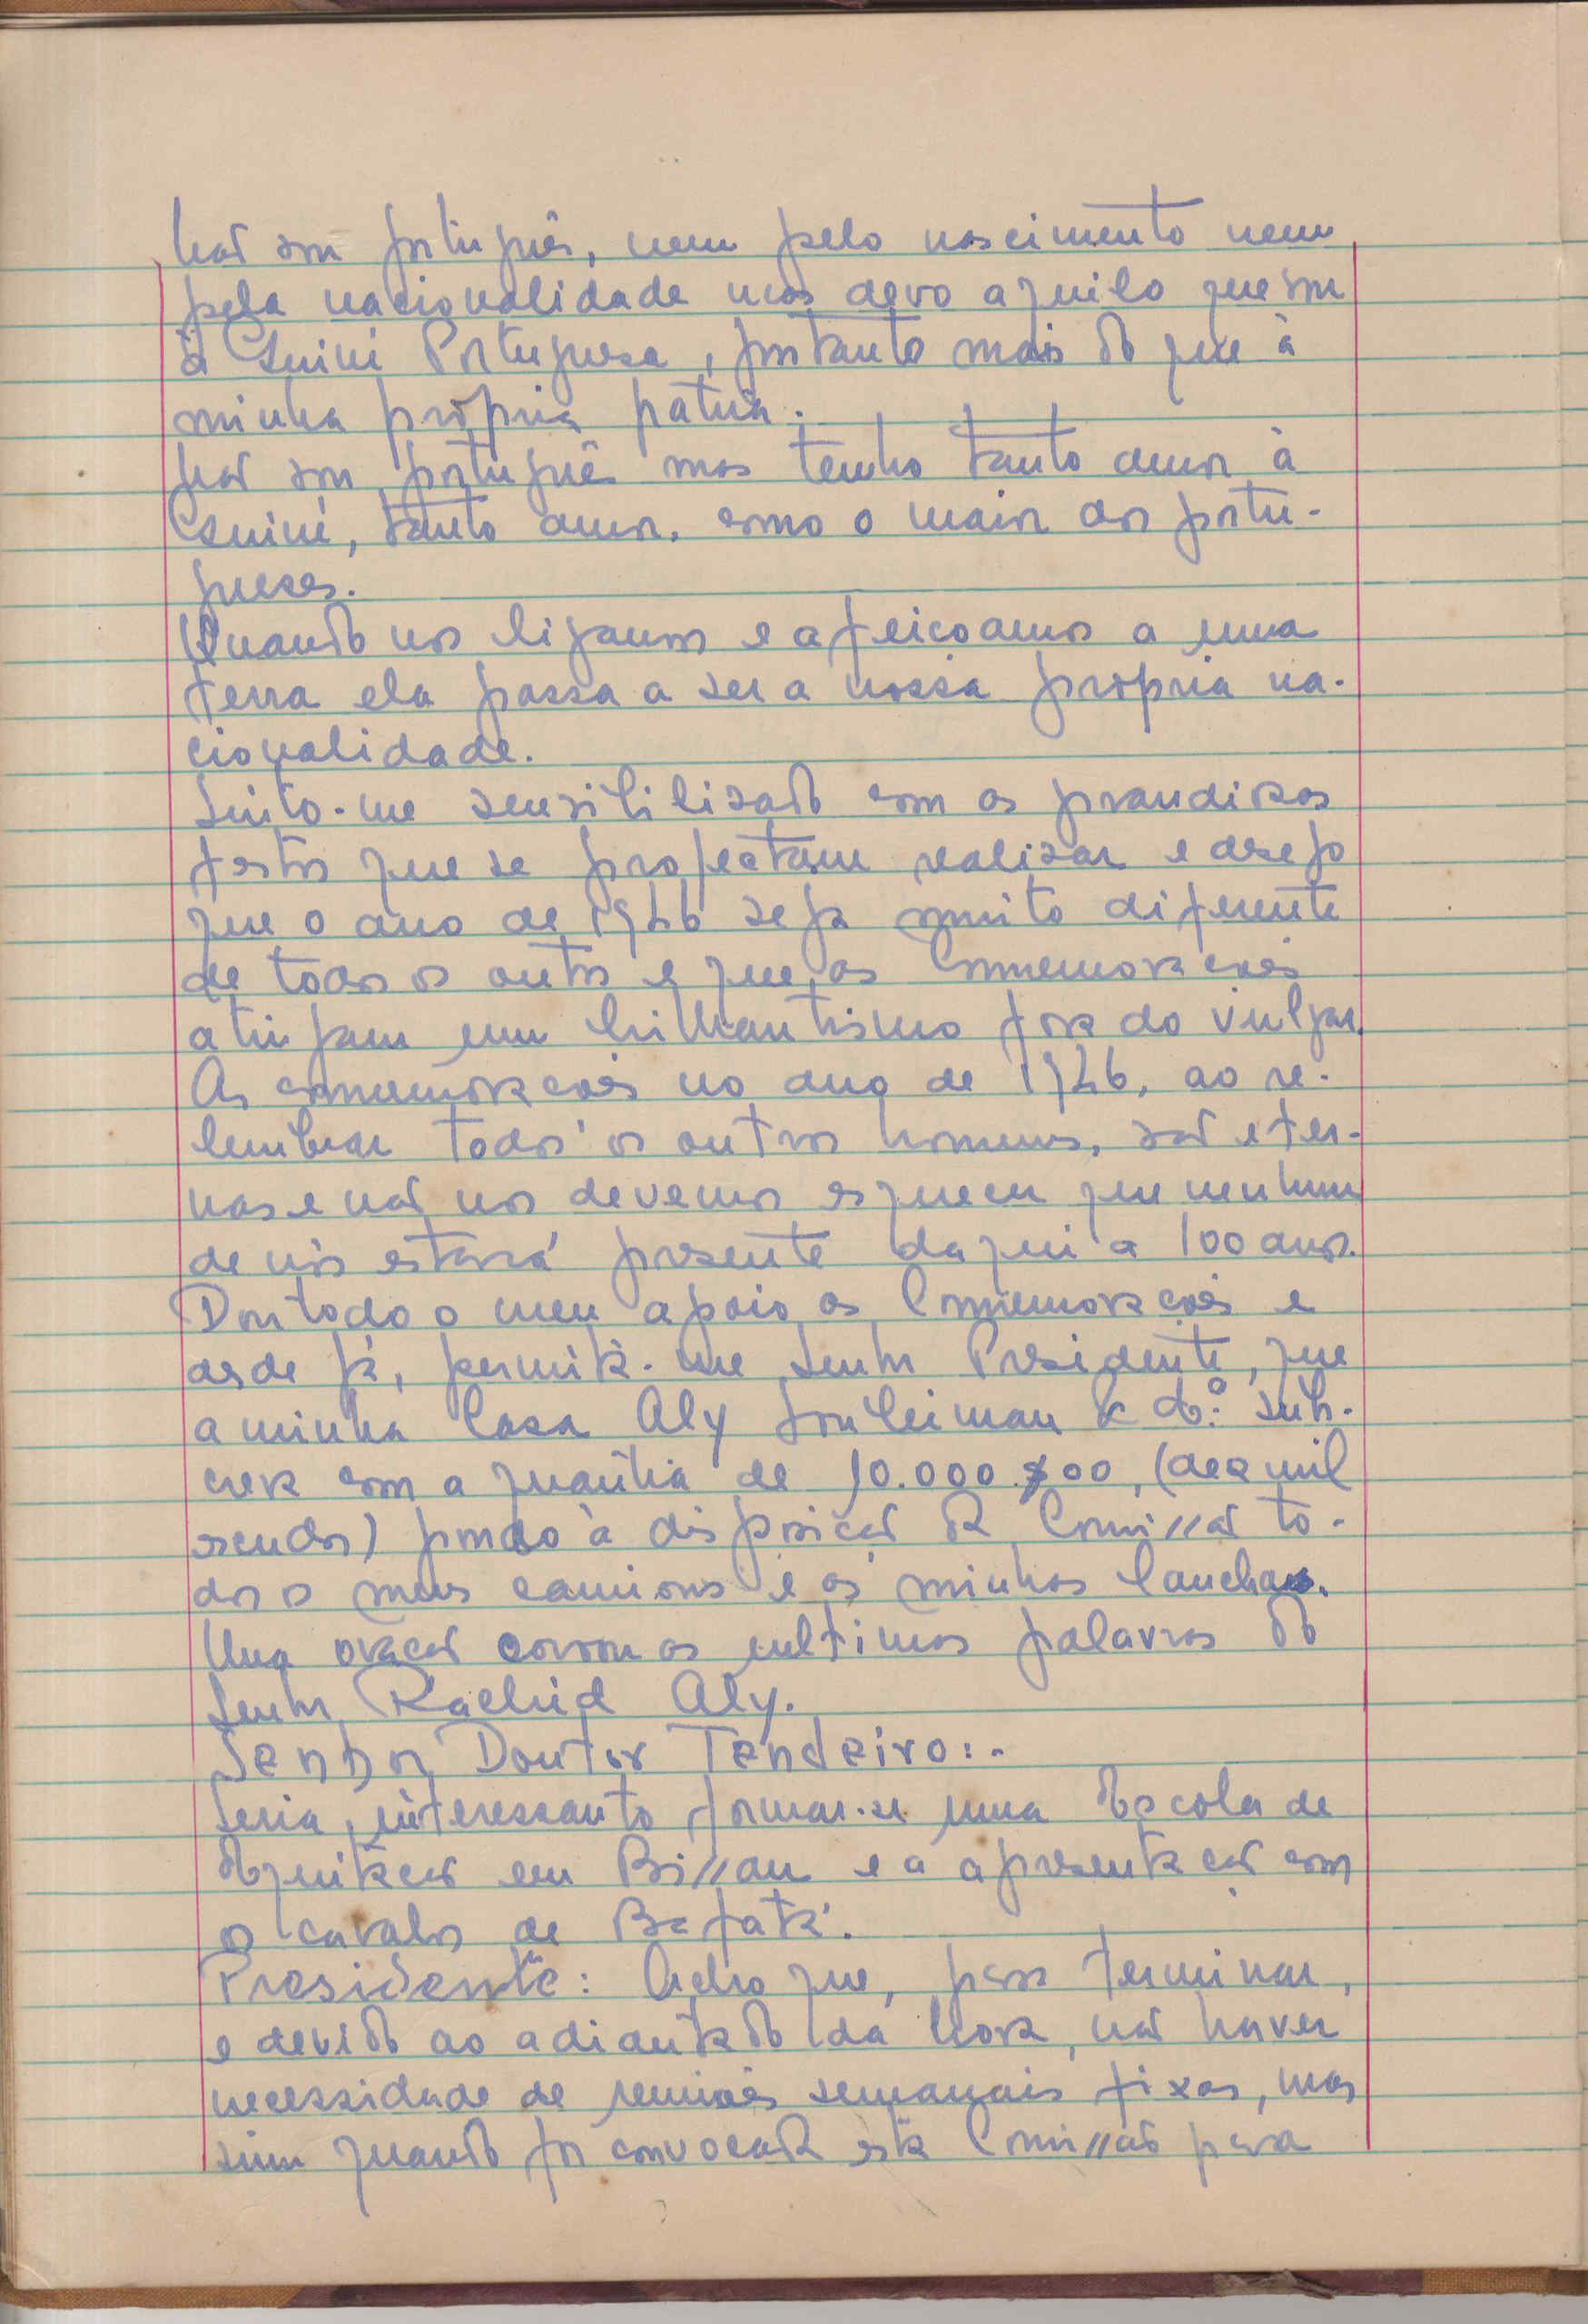 Não sou português, nem pelo nascimento nem
pela nacionalidade mas devo aquilo que sou
à Guiné Portuguesa, portanto mais do que à
minha própria pátria.
Não sou português mas tenho tanto amor à
Guiné, tanto amor, como o maior dos portu-
gueses.
Quando nos ligamos e afeiçoamos a uma
terra ela passa a ser a nossa própria na-
cionalidade.
Sinto-me sensibilisado com as grandiosas
festas que se projectam realizar e desejo
que o ano de 1946 seja muito diferente
de todos os outros e que as Comemorações
atinjam um brilhantismo fora do vulgar.
As comemorações no ano de 1946, ao re-
lembrar todos os outros homens, são eter-
nas e não nos devemos esquecer que nenhum
de nós estará presente daqui a 100 anos.
Dou todo o meu apoio as Comemorações e
desde já, permita-me Senhor Presidente, que
a minha Casa Aly Souleiman & Co.º subs-
creva com a quantia de 10.000$00, (dez mil
escudos) pondo à disposição da Comissão to-
dos os meus camions e as minhas lanchas.
Uma ovação coroou as ultimas palavras do
Senhor Rachid Aly.
Senhor Doutor Tendeiro:-
Seria interessante formar-se uma Escola de
Equitação em Bissau e a apresentação com
os cavalos de Bafatá.
Presidente: Acho que, para terminar,
e devido ao adiantado da hora, não haver
necessidade de reuniões semanais fixas, mas
sim quando for convocada esta Comissão para